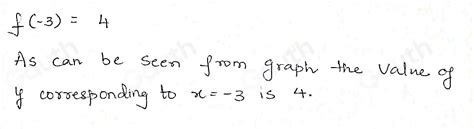 f(-3) = 4
As can be seen from graph the value of
y corresponding to x = -3 is 4.